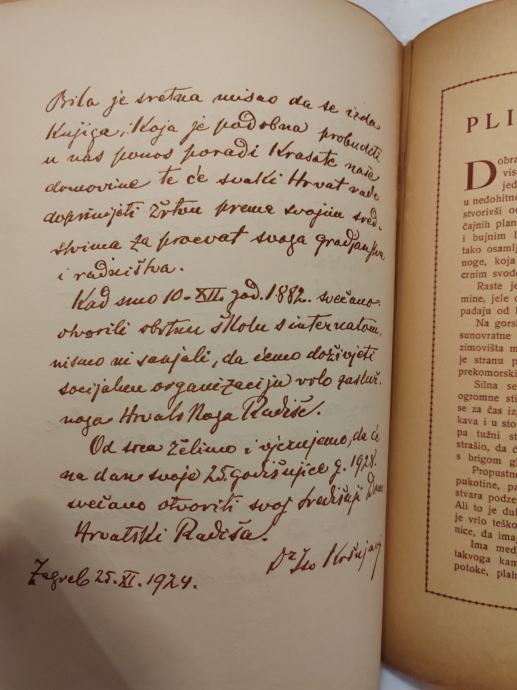 Bila je sretna misao da se izda
Knjiga, Koja je podobna probuditi
u nas ponos poradi Krasote naše
domovine te će svaki Hrvat rado
doprinijeti žrtvu prema svojim sred-
stvima za procvat svoga gradjanstva
i radništva.
Kad smo 10-XII. god. 1882. svečano
otvorili obrtnu školu s internatom,
nismo ni sanjali, da ćemo doživjeti
socijalnu organizaciju vrlo zasluž-
noga Hrvatskoga Radiše.
Od srca želimo i vjerujemo, da će
na dan svoje 25. godišnjice g. 1928.
svečano otvoriti svoj Središnji Dom
Hrvatski Radiša.
Dr Iso Kršnjavi
Zagreb 25. XI. 1924.
PLI
Dobra
vis
jed
u nedohitne
stvorivši oc
čajnih plan
i bujnim l
tako osamlj
noge, koja
crnim svode
Raste je
mine, jele o
padaju od l
Na gorsk
sunovratne
zimovišta m
je stranu p
prekomorski
Silna se
ogromne sti
se za čas iz
kava i u sto
pa tužni st
strašio, da č
s brigom gl
Propustne
pukotine, pa
stvara podze
Ali to je duk
je vrlo teško
nice, da imaj
Ima med
takvoga kam
potoke, plah